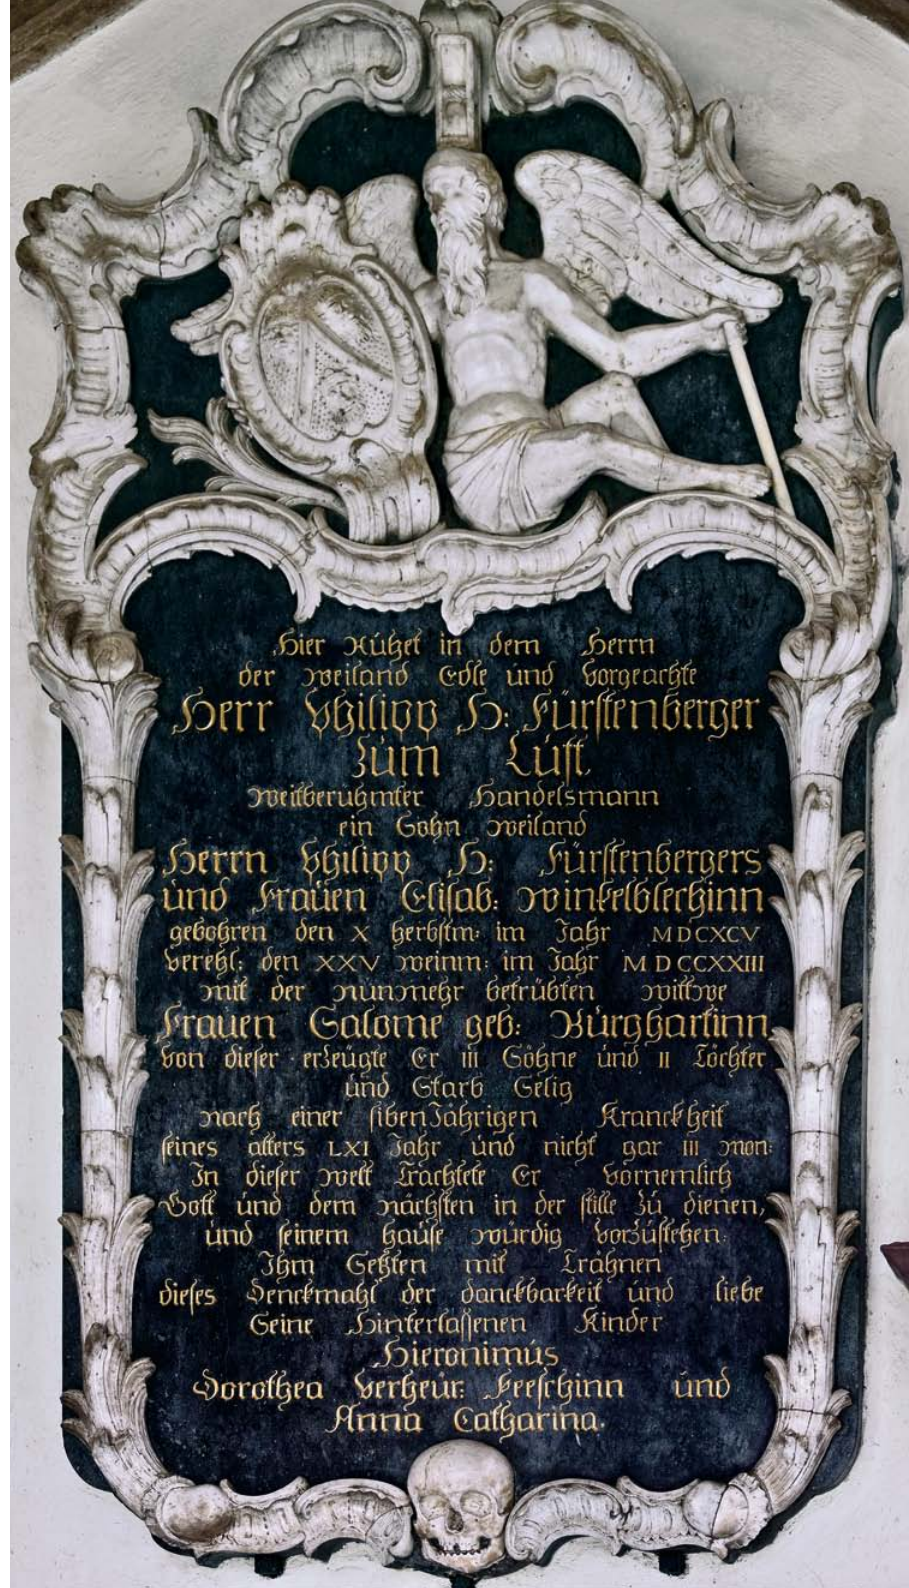 Hier Rúhet in dem Herrn
der weiland Edle únd Vorgeachte
Herr Philipp H: Fürstenberger
Zúm Lúft,
weitberúhmter Handelsmann
ein Sohn weiland
Herrn Philipp H: Fürstenbergers
únd Fraúen Elisab: Winkelblechinn
gebohren den X Herbstm: im Jahr MDCXCV
verehl: den XXV weinm: im Jahr MDCCXXIII
mit der núnmehr betrúbten wittwe
Fraúen Salome geb: Búrghartinn,
Von dieser erzeúgte Er III Söhne únd II Töchter
únd Starb Selig
nach einer sibenJährigen Kranckheit
seines alters LXI Jahr únd nicht gar III mon:
In dieser welt Trachtete Er vornemlich
Gott únd dem nächsten in der stille zú dienen,
únd seinem haúse würdig vorzústehen.
Ihm Setzten mit Trähnen
dieses Denckmahl der danckbarkeit únd liebe
Seine Hinterlassenen Kinder
Hieronimús
Dorothea Verheúr: Feeschinn únd
Anna Catharina.